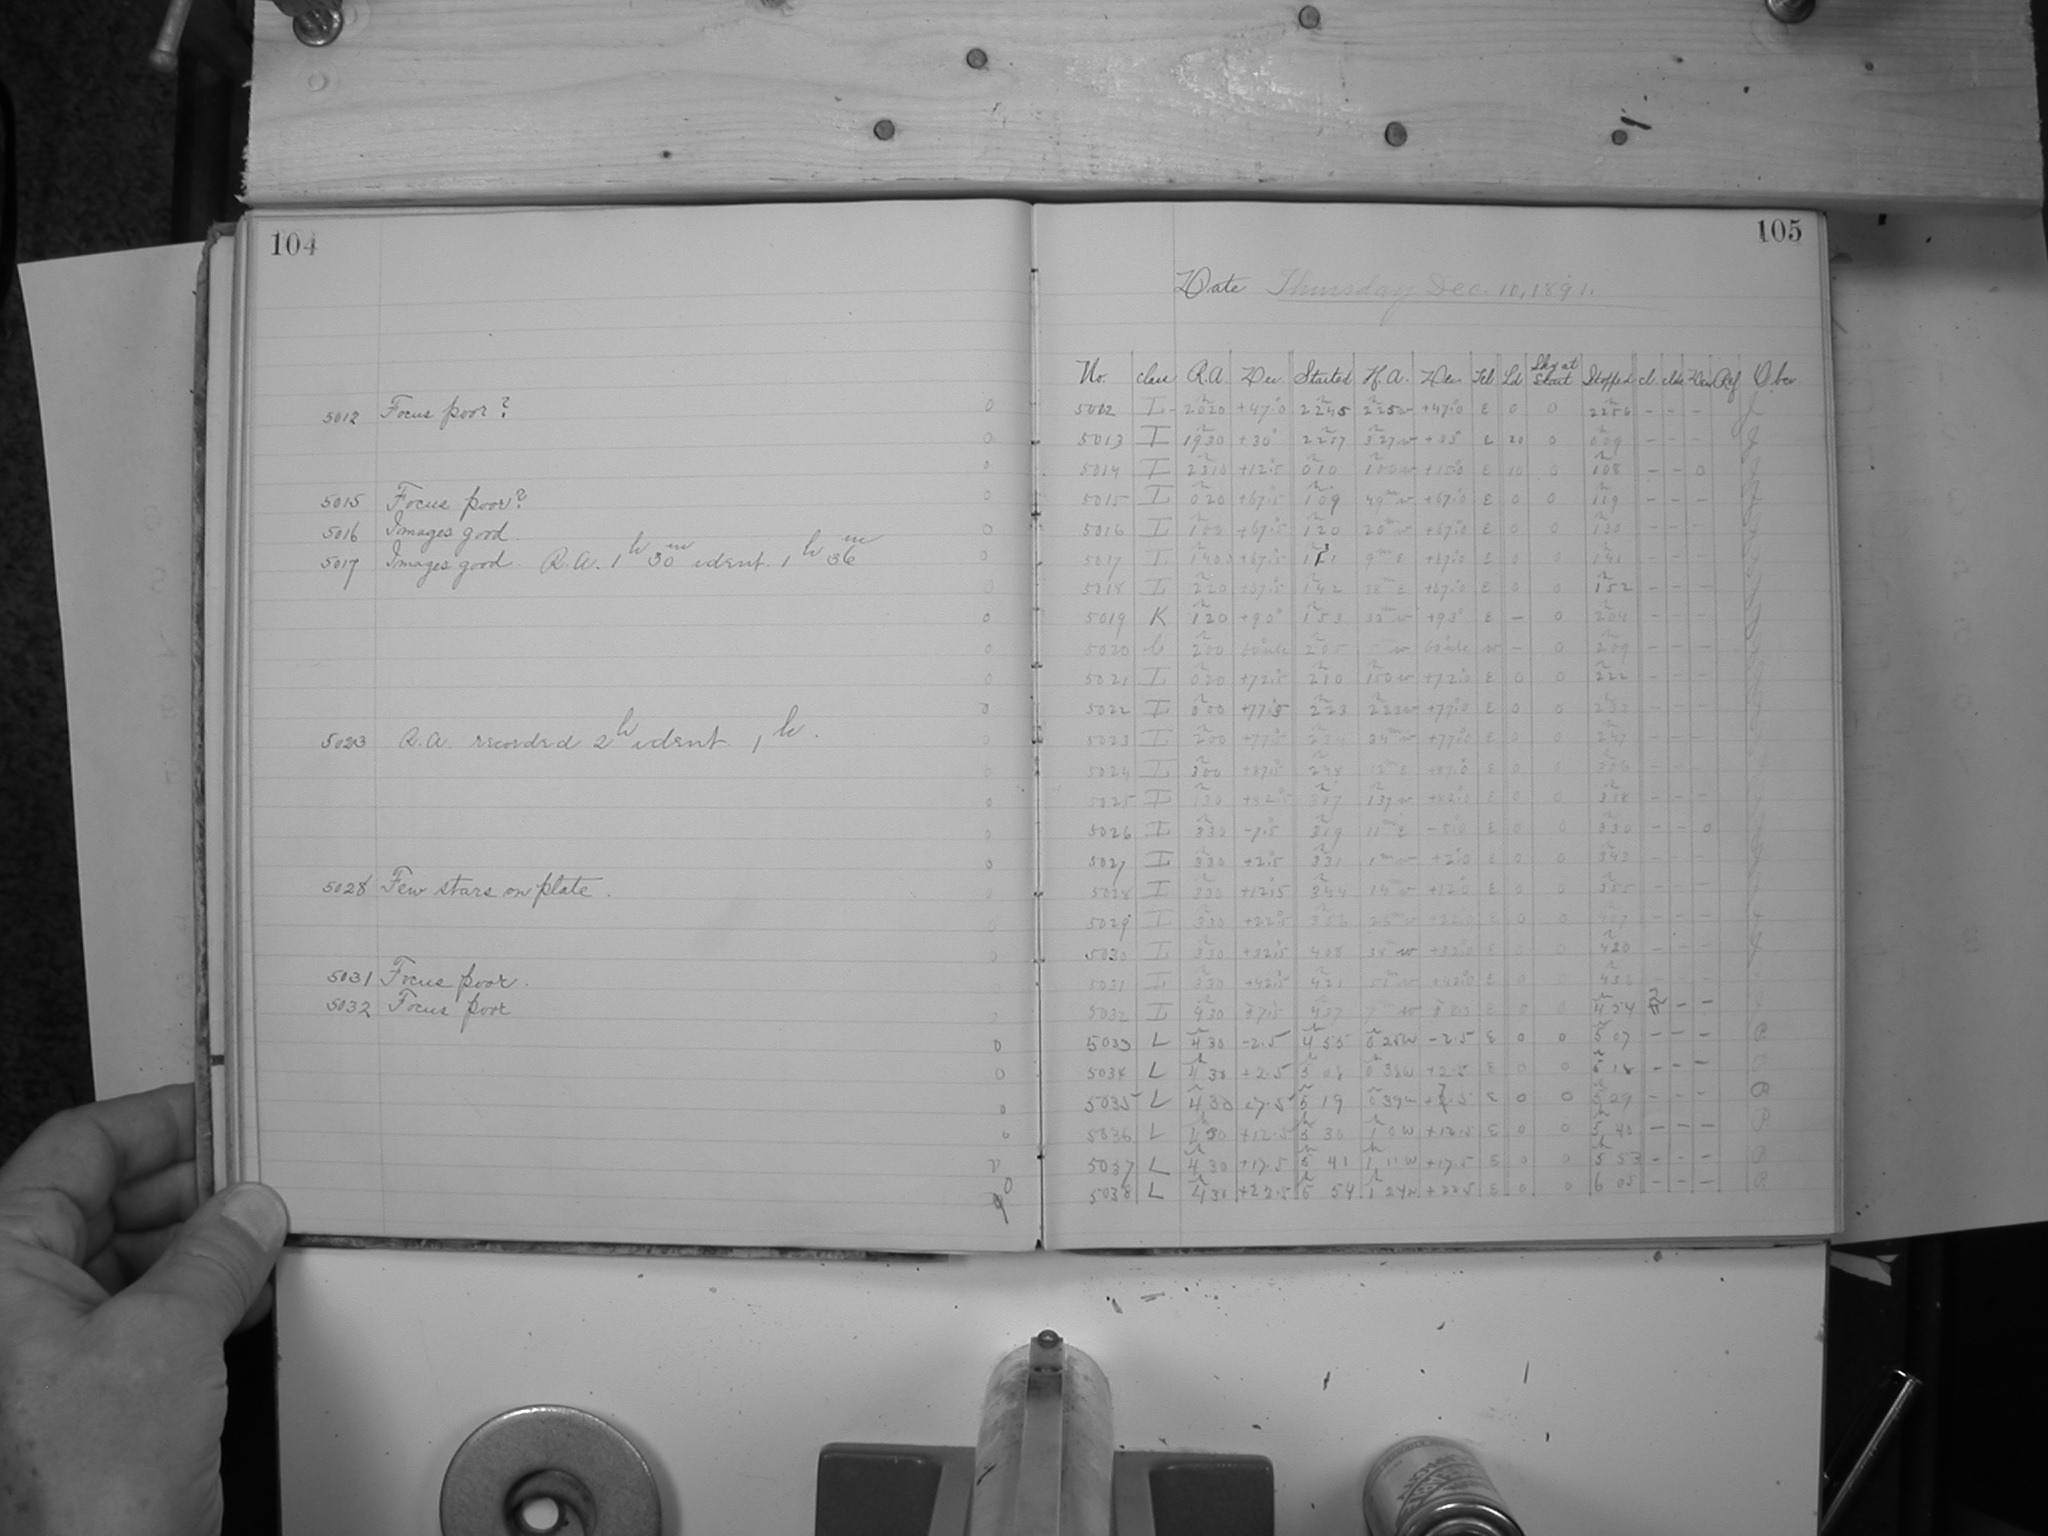 104
5012 Focus poor?
5015 Focus poor?
5016 Images good.
5017 Images good. R.A. 1h 30m ident. 1h 36m
5023 R.A. recorded 2h ident 1h.
5028 Few stars on plate.
5031 Focus poor.
5032 Focus poor
105
Date Thursday Dec. 10, 1891.
No. class R.A. Dec. Started H.A. Dec. Tel Ld Sky at Start Stopped cl. clk Dec Ref Obs.
5012 L 2020 +47.0 2245 225w +47.0 E 0 0 2256 - - -
5013 I 1930 +30° 2257 327w E 20 0 009 - - -
5014 I 2310 +12.5 010 100w +15.0 E 10 0 108 - - 0
5015 I 020 +67.5 109 49m w +67.0 E 0 0 119 - - -
5016 I 100 +67.5 120 20m w +67.0 E 0 0 130 - - -
5017 I +67.5 9m E +67.0 E 0 0 141 - - -
5018 I 220 +67.5 142 38m E +67.0 E 0 0 152 - - -
5019 K 120 +90° 153 33m w +93° E - 0 204 - - -
5020 200 205 w - 0 209 - - -
5021 I 020 +72.5 210 150w +72.0 E 0 0 222 - - -
5022 I 000 +77.5 223 223w +77.0 E 0 0 233 - - -
5023 I 200 +77.5 234 34m w +77.0 E 0 0 247 - - -
5024 I 300 +87.5 248 12m E +87.0 E 0 0 306 - - -
5025 I 130 +82.5 307 137w +82.0 E 0 0 318 - - -
5026 I 330 -7.5 319 11m E E 0 0 330 - - 0
5027 I 330 +2.5 331 1m w +2.0 E 0 0 343 - - -
5028 I 330 +12.5 344 14m w +12.0 E 0 0 355 - - -
5029 I 330 +22.5 356 26m w +22.0 E 0 0 407 - - -
5030 I 330 +32.5 408 38m w +32.0 E 0 0 420 - - -
5031 I 330 +42.5 421 51m w +42.0 E 0 0 436 - - -
5032 I 430 437 w E 0 0 454 - -
5033 L 4 30 -2.5 4 55 0 25w -2.5 E 0 0 5 07 - - -
5034 L 4 30 +2.5 5 08 0 38w +2.5 E 0 0 5 18 - - -
5035 L 4 30 +7.5 5 19 0 39w +7.5 E 0 0 5 29 - - -
5036 L 4 30 +12.5 5 30 1 0w +12.5 E 0 0 5 40 - - -
5037 L 4 30 +17.5 5 41 1 11w +17.5 E 0 0 5 53 - - -
5038 L 4 30 +22.5 5 54 1 24w +22.5 E 0 0 6 05 - - -